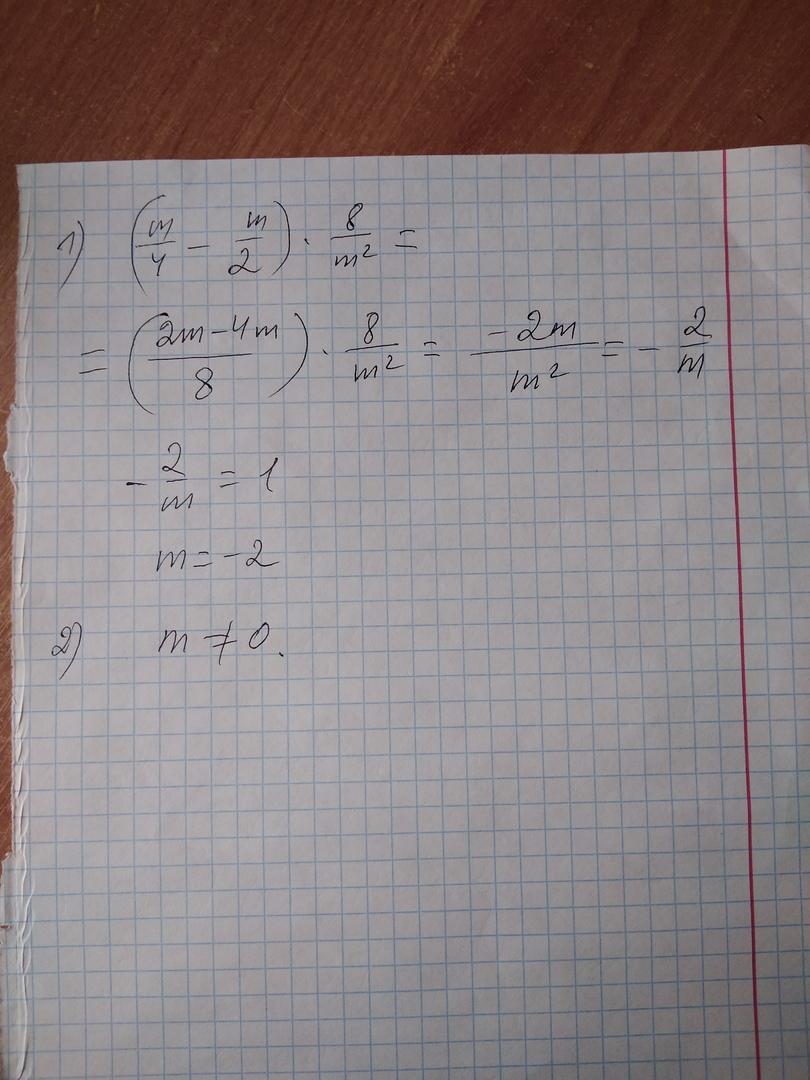 1) (m/4 - m/2) · 8/m² =
= ((2m-4m)/8) · 8/m² = -2m/m² = - 2/m
- 2/m = 1
m = -2
2) m ≠ 0.